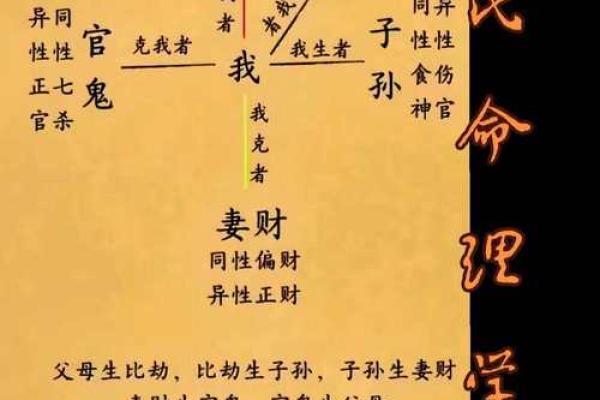 同性七杀
异性正官
官鬼
克我者
我
我生者
子孙
同性食神
异性伤官
我克者
妻财
同性偏财
异性正财
父母生比劫，比劫生子孙，子孙生妻财
命理学